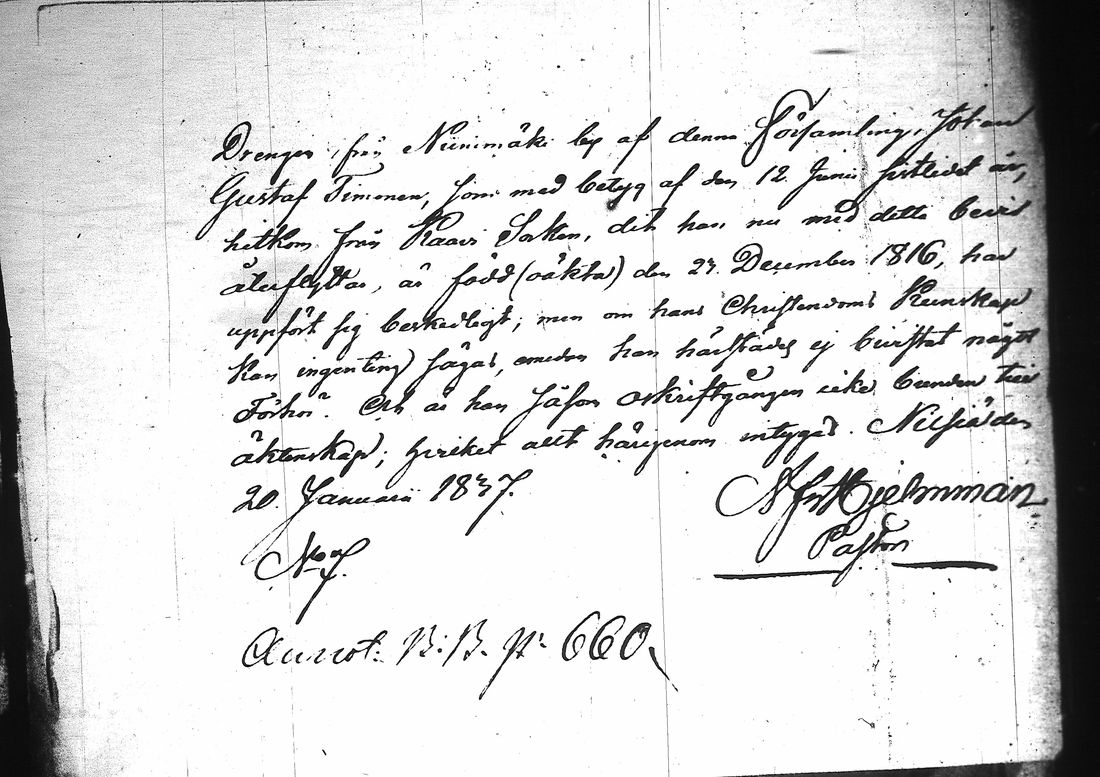 Drengen från Niinimäki by af denna Församling, Johan
Gustaf Timonen, som med betyg af den 12. Junii sistledet år,
hitkom från Kaavi Socken, dit han nu med detta bevis
återflyttar, är född (oäkta) den 27. December 1816, har
uppfört sig beskedligt; men om hans Christendoms Kunskap
kan ingenting sägas, emedan han härstädes ej bivistat något
Förhör. Och är han såsom oskriftgången icke bunden till
äktenskap; hvilket allt härigenom intygas. Nilsiä den
20. Januarii 1837.
Hjelmman
Pastor
No 7.
Annot. B. B. p: 660.